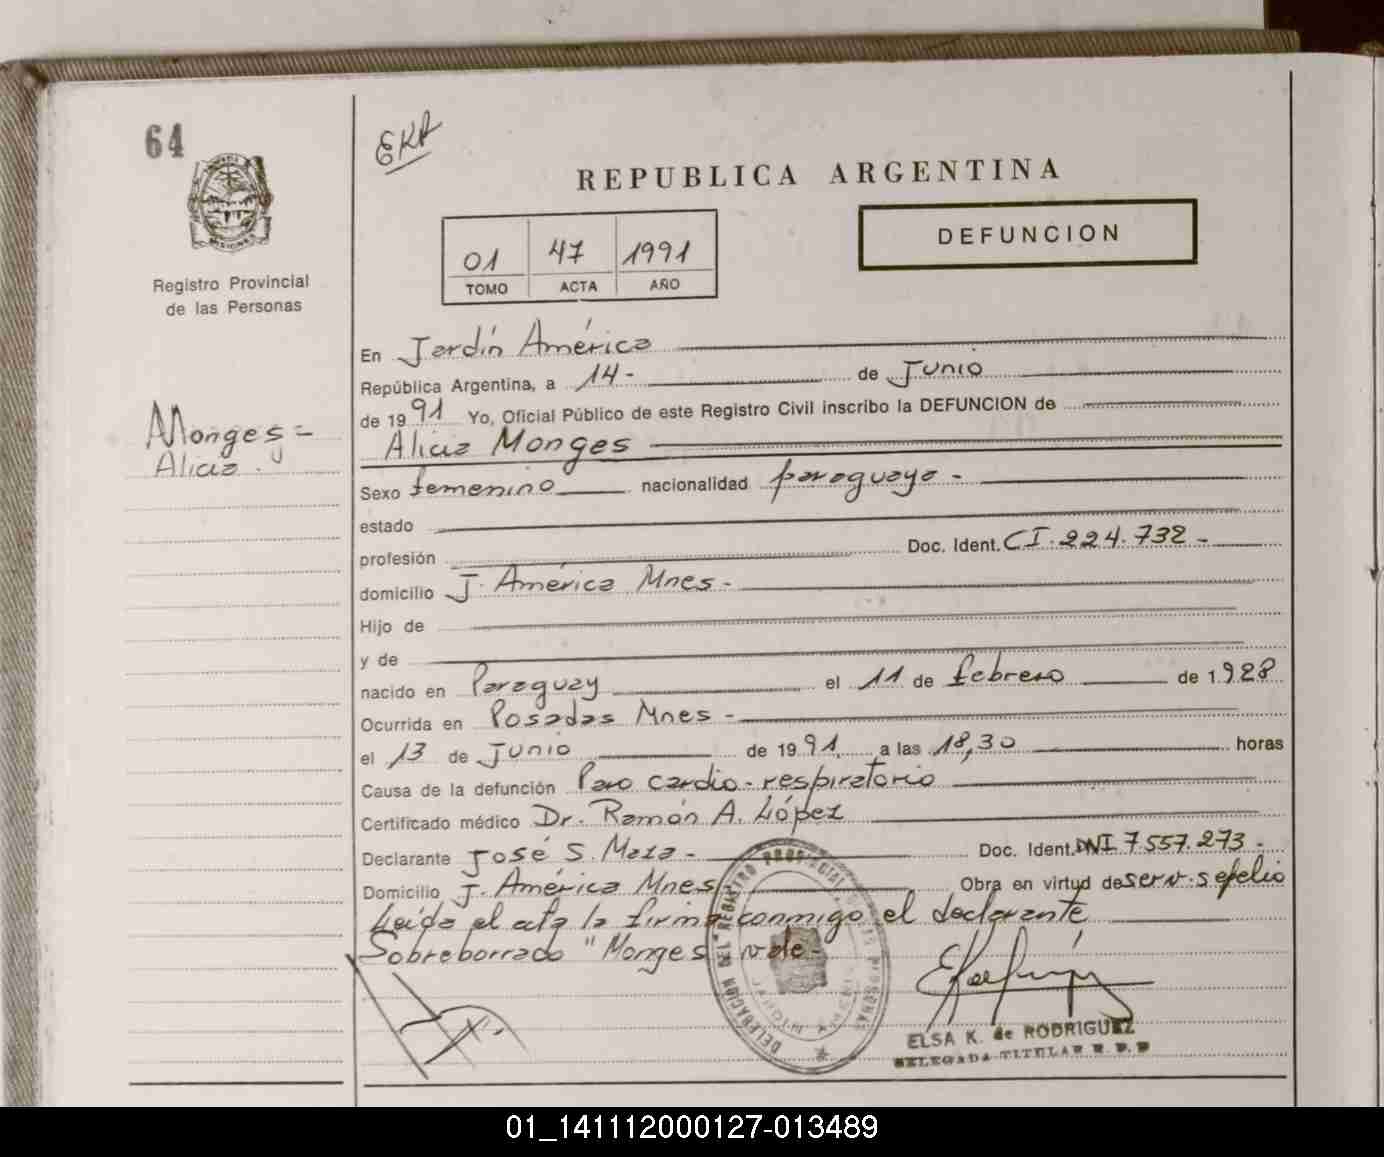 64
EKR
REPUBLICA ARGENTINA
DEFUNCION
01 47 1991
TOMO ACTA AÑO
Registro Provincial
de las Personas
MISIONES
Monges=
Alicia.
En Jardín América
República Argentina, a 14- de Junio
de 1991 Yo, Oficial Público de este Registro Civil inscribo la DEFUNCION de
Alicia Monges
Sexo femenino nacionalidad paraguaya-
estado
profesión Doc. Ident. CI.224.732-
domicilio J. América Mnes-
Hijo de
y de
nacido en Paraguay el 11 de febrero de 1.928
Ocurrida en Posadas Mnes-
el 13 de Junio de 1991. a las 18,30 horas
Causa de la defunción Paro cardio-respiratorio
Certificado médico Dr. Ramón A. López
Declarante José S. Maza- Doc. Ident. DNI 7.557.273-
Domicilio J. América Mnes Obra en virtud de serv. sepelio
Leída el acta la firma conmigo el declarante
Sobreborrado "Monges" vale-
DELEGACION DEL REGISTRO PROVINCIAL DE LAS PERSONAS
ELSA K. de RODRIGUEZ
DELEGADA TITULAR R. P. P
01_141112000127-013489